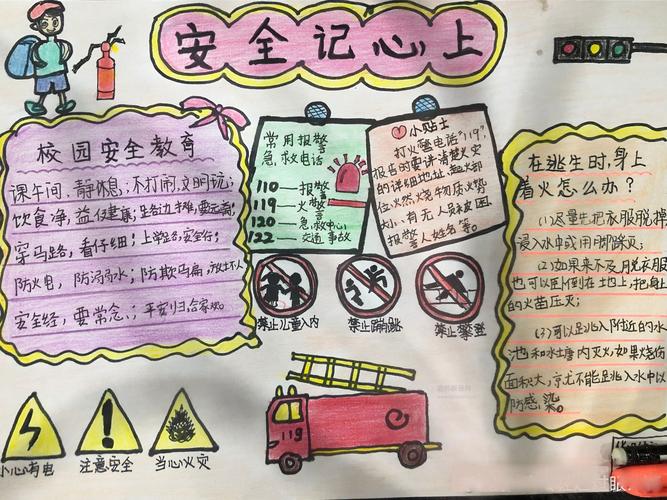 安全记心上
校园安全教育
课午间,静休息;不打闹,文明玩;
饮食净,益健康;
穿马路,看仔细;上学路,安全行;
防火电,防溺水;防欺骗,
安全经,要常念;平安归,合家欢。
常用报警
急救电话
110—报警
119—火警
120—急救中心
122—交通事故
小贴士
打火警电话"119"
报告时要讲清楚火灾
的详细地址,起火部
位,火燃烧物质,火势
大小,有无人员被困
报警人姓名等。
禁止儿童入内
禁止蹦跳
禁止攀登
119
小心有电
注意安全
当心火灾
在逃生时,身上
着火怎么办?
(1)尽量先把衣服脱掉
浸入水中或用脚踩灭;
(2)如果来不及脱衣服
也可以卧倒在地上,把身上
的火苗压灭;
(3)可以跳入附近的水
池和水塘内灭火,如果烧伤
面积大,就不能跳入水中以
防感染。